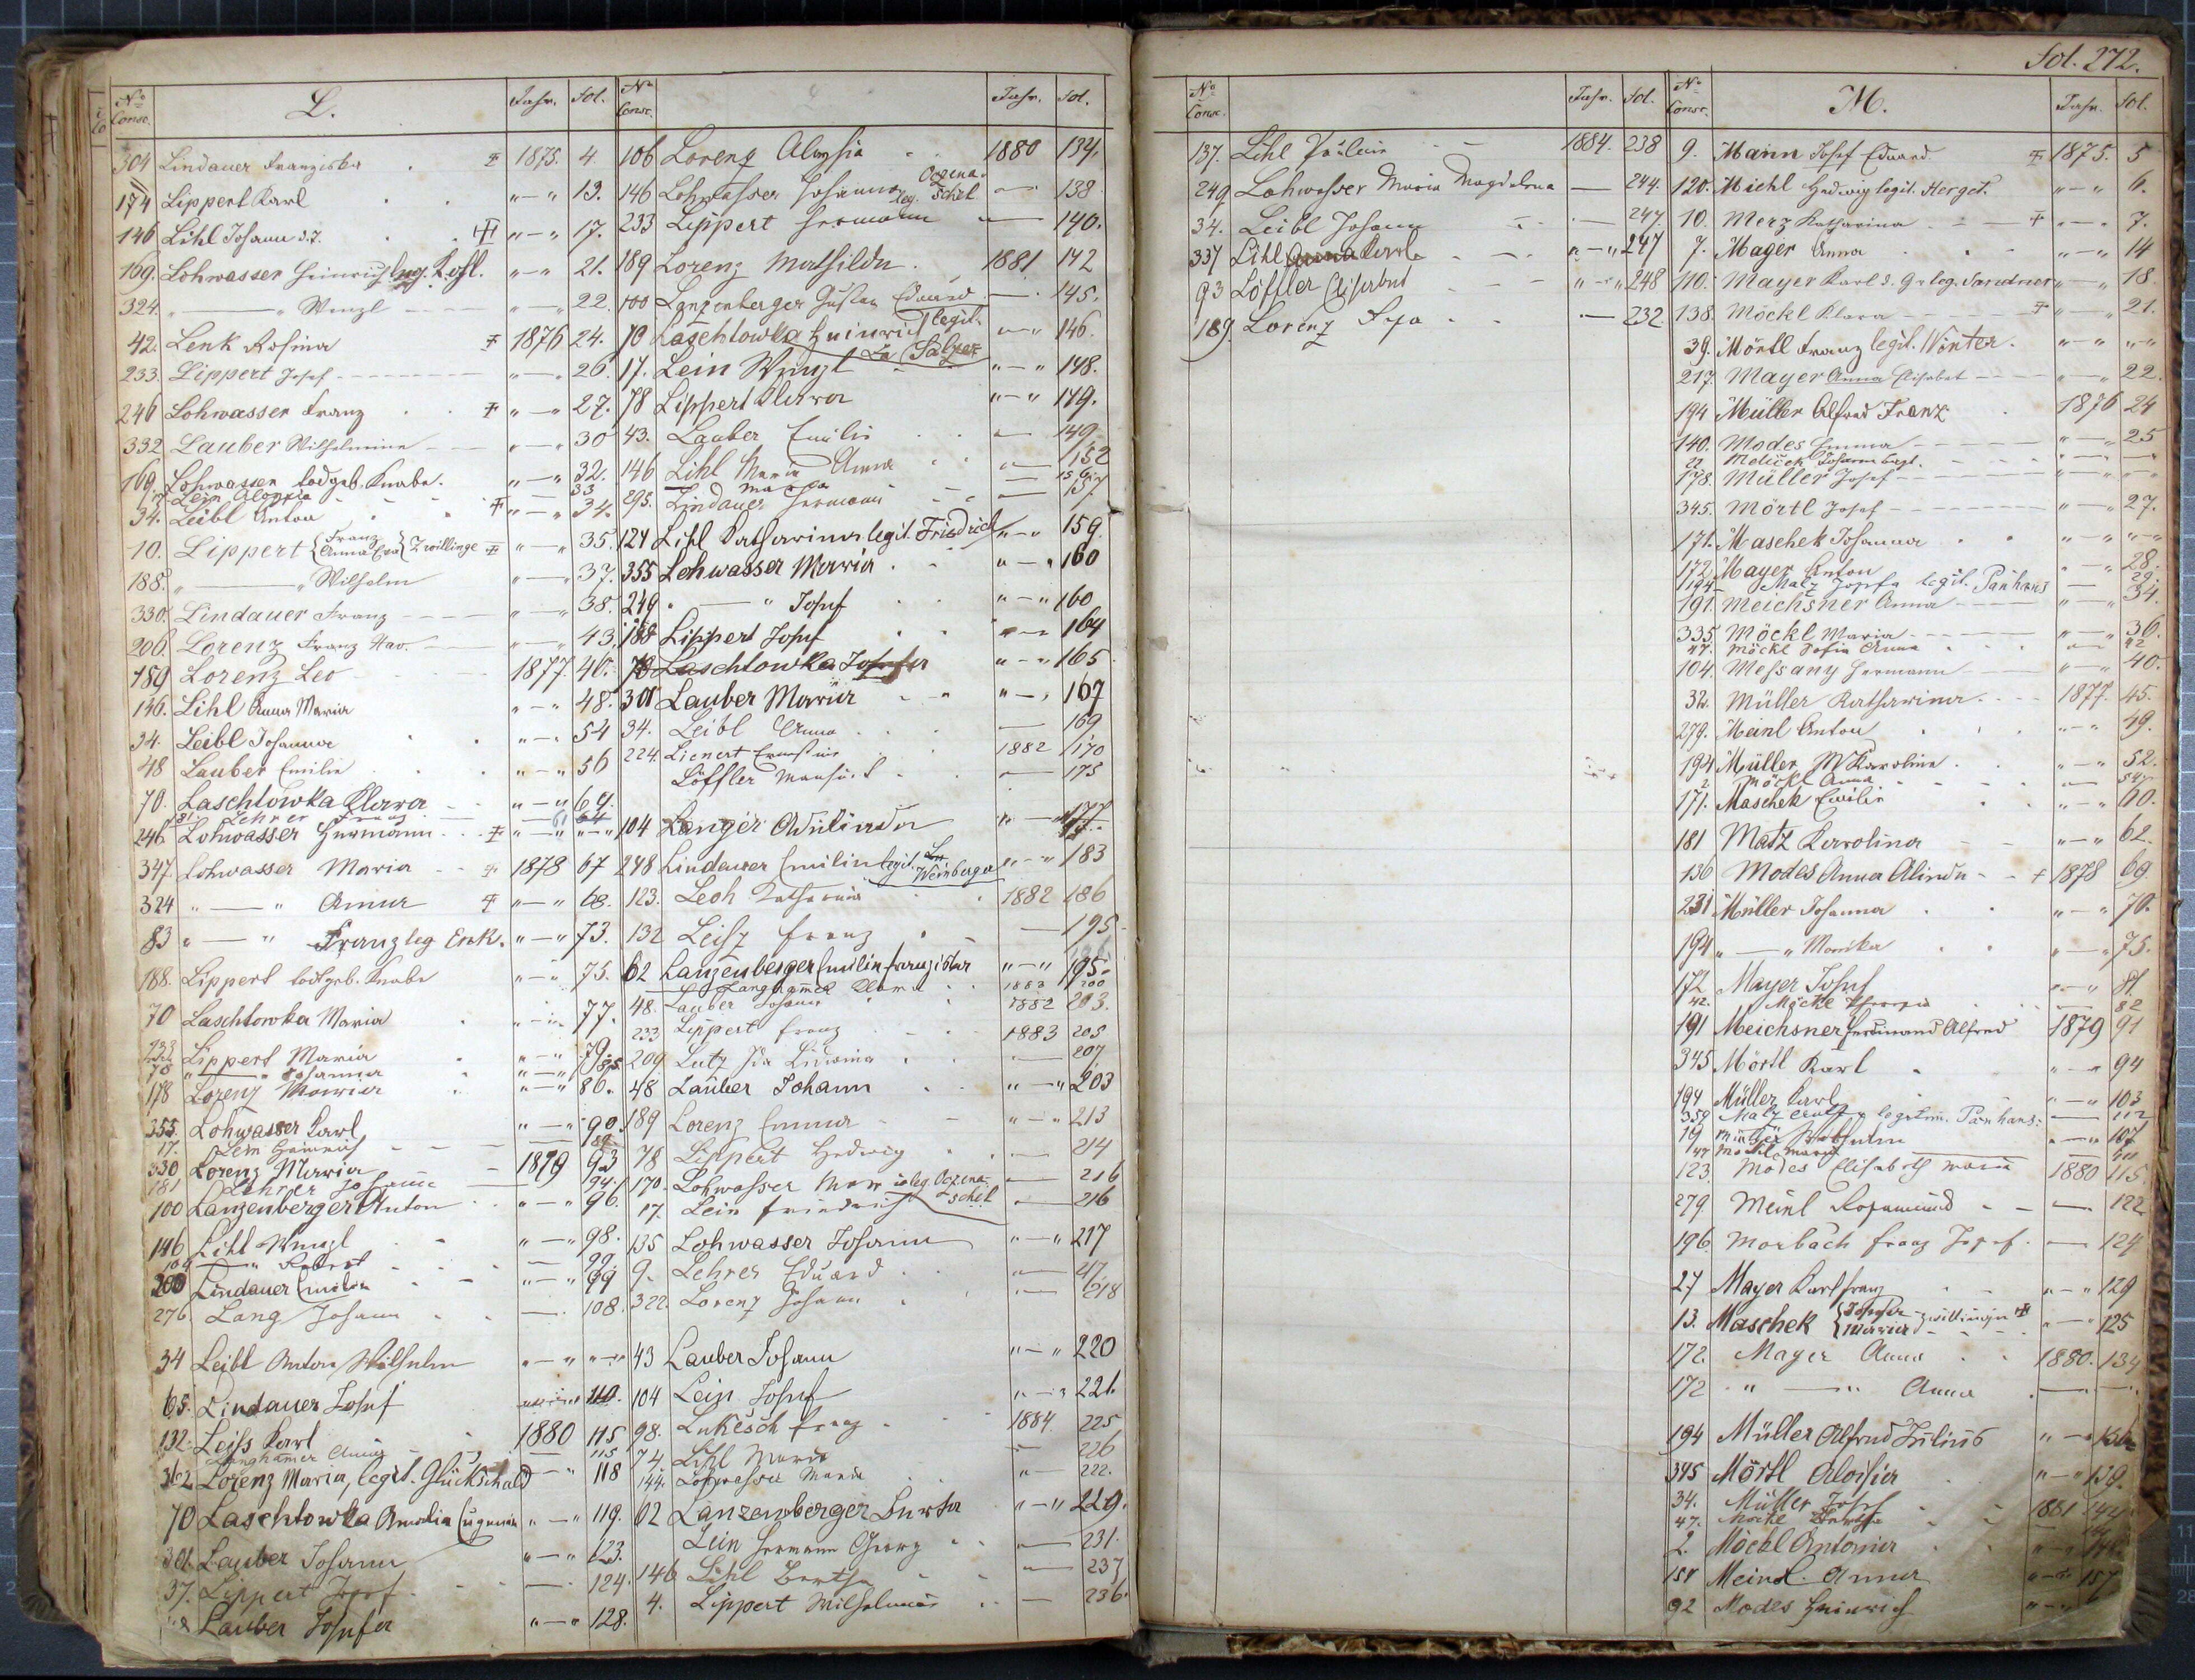 Fol. 272.
No Consc. L. Jahr. Fol.
304 Lindauer Franziska † 1875. 4.
174 Lippert Karl " — " 13.
146 Lihl Johann d. J. † " — " 17.
169. Lohwasser Heinrich leg. Kohl. " — " 21.
324. " — " Wenzl " — " 22.
42. Lenk Rosina † 1876 24.
233. Lippert Josef " — " 26.
246 Lohwasser Franz † " — " 27.
332 Lauber Wilhelmine " — " 30
169. Lohwasser todgeb. Knabe. " — " 32.
17 Lein Aloysia 33
34. Leibl Anton † " — " 34.
10. Lippert {Franz Anna Eva} Zwillinge † " — " 35.
188. " — " Wilhelm " — " 37.
330. Lindauer Franz " — " 38.
206. Lorenz Franz Xav. " — " 43.
189 Lorenz Leo 1877. 46.
146. Lihl Anna Maria " — " 48.
34. Leibl Johanna " — " 54
48 Lauber Emilie " — " 56
70. Laschtowka Klara " — " 61.
181 Lehrer Franz — 61 64
246 Lohwasser Hermann † " — " " — "
347. Lohwasser Maria † 1878 67
324 " — " Anna † " — " 68.
83 " — " Franz leg Enk. " — " 73.
188. Lippert todtgeb. Knabe " — " 75.
70 Laschtowka Maria " — " 77.
233 Lippert Maria " — " 79.
78 " — " Johanna " — " 85
178 Lorenz Maria " — " 86.
355. Lohwasser Karl " — " 90.
17. Lein Heinrich — 89
330 Lorenz Maria 1879 93
181 Lehrer Johann — 94.
100 Lanzenberger Anton " — " 96.
146 Lihl Wenzl " — " 98.
104 — " Robert — 99.
200 Lindauer Emilie " — " 99
276. Lang Johann — 108.
34 Leibl Anton Wilhelm " — " " — "
65. Lindauer Josef 110.
132. Leiss Karl 1880 115
Langhamer Anna — 115
362 Lorenz Maria, legit. Glückschald " — " 118
70 Laschtowka Amalia Eugenia " — " 119.
301. Lauber Johann " — " 123.
37. Lippert Josef — 124.
Lauber Josefa " — " 128.
No Consc. Jahr. Fol.
106 Lorenz Aloysia 1880 134.
146 Lohwasser Johanna leg. Oczenaschek — 138
233 Lippert Hermann — 140.
189 Lorenz Mathilde. 1881 142
100 Lanzenberger Gustav Eduard — 145.
70 Laschtowka Heinrich legit. Salzer " — " 146.
17. Lein Wenzl " — " 148.
78 Lippert Klara " — " 149.
43. Lauber Emilie — 149
146 Lihl Maria Anna — 152
295. Lindauer Hermann — 157
124 Lihl Katharina legit. Friedrich " — " 159
355 Lohwasser Maria " — " 160
249 " — " Josef " — " 160
188 Lippert Josef " — " 164
70 Laschtowka Josefa " — " 165
301 Lauber Maria " — " 167
34. Leibl Anna — 169
224. Lienert Ernestine 1882 170
Löffler — 175
104 Langer Adelinde " — " 177
248 Lindauer Emilie legit. Weinberger " — " 183
123. Leoh Katharina 1882 186
132 Leiss Franz — 195
62 Lanzenberger Emilie Franziska " — " 195
Langhamer Clara 1883 200
48. Lauber Johann 1882 203.
233 Lippert Franz 1883 205
209 Lutz Ida Ludwina — 207
48 Lauber Johann " — " 203
189 Lorenz Emma " — " 213
78 Lippert Hedwig — 214
170. Lohwasser Maria leg. Oczenaschek — 216
17. Lein Friedrich — 216
135 Lohwasser Johann " — " 217
9. Lehrer Eduard — 217
322. Lorenz Johann — 218
43 Lauber Johann " — " 220
104 Lein Josef " — " 221.
98. Lukesch Franz 1884 225
74. Lihl Maria — 226
144. Lohwasser Maria " — 222.
62 Lanzenberger Berta " — " 229.
Lein Hermann Georg — 231.
146 Lihl Bertha — 237
4. Lippert Wilhelmine — 236.
No Consc. Jahr. Fol.
137. Lihl Paulin 1884. 238
249 Lohwasser Maria Magdalena — 244.
34. Leibl Johann — 247.
337 Lihl Anna Karl " — " 247
93 Löffler Elisabet " — " 248
189. Lorenz — 232
No Consc. M. Jahr. Fol.
9. Mann Josef Eduard † 1875. 5
120. Michl Hedwig legit. Herget. " — " 6.
10. Merz Katharina † " — " 7.
7. Mager Anna " — " 14
110. Mayer Karl d. G. leg. Sandner " — " 18.
138. Möckl Klara † " — " 21.
39. Mörtl Franz legit. Winter. " — " " — "
217. Mayer Anna Elisabet " — " 22.
194 Müller Alfred Franz 1876 24
140. Modes Emma " — " 25
22 Melicek Johann legit. " — "
178. Müller Josef " — " "
345. Mörtl Josef " — " 27.
171. Maschek Johanna " — " " — "
172. Mayer Anton " — " 28.
194 Matz Josefa legit. Panhans — 29.
191. Meichsner Anna " — " 34.
335. Möckl Maria " — " 36.
47. Möckl Sofia Anna 42
104. Messany Hermann " — " 40.
32. Müller Katharina 1877. 45.
279. Meinl Anton " — " 49.
194 Müller M Karoline " — " 52.
2 Möckl Anna — 54.
171. Maschek Emilie " — " 60.
181 Matz Karolina " — " 62.
136 Modes Anna Alinde † 1878 69.
231 Müller Johanna " — " 70.
194 " — " Monika " — " 75.
172 Mayer Josef " — " 81
42. Möckl Theresia 82
191 Meichsner Ferdinand Alfred 1879 91
345 Mörtl Karl " — " 94
194 Müller Karl " — " 103
359 Matz legitim. Panhans. —
19 Müller Wilhelm " — " 107
47 Möckl Maria
123. Modes Elisabeth Maria 1880 115
279 Meinl Rosamund — 122
196. Morbach Franz Josef. — 124
27 Mayer Karl Franz " — " 129
13. Maschek {Josefa Maria} Zwillinge † " — " 125
172. Mayer Anna 1880. 134
172 " — " Anna — "
194 Müller Alfred Julius " — " 136
345 Mörtl Aloisia " — " 139.
34. Müller Josef 1881 142
47. Möckl Bertha
2. Möckl Antonia " — "
151 Meinl. Anna " — " 157
92 Modes Heinrich " — "